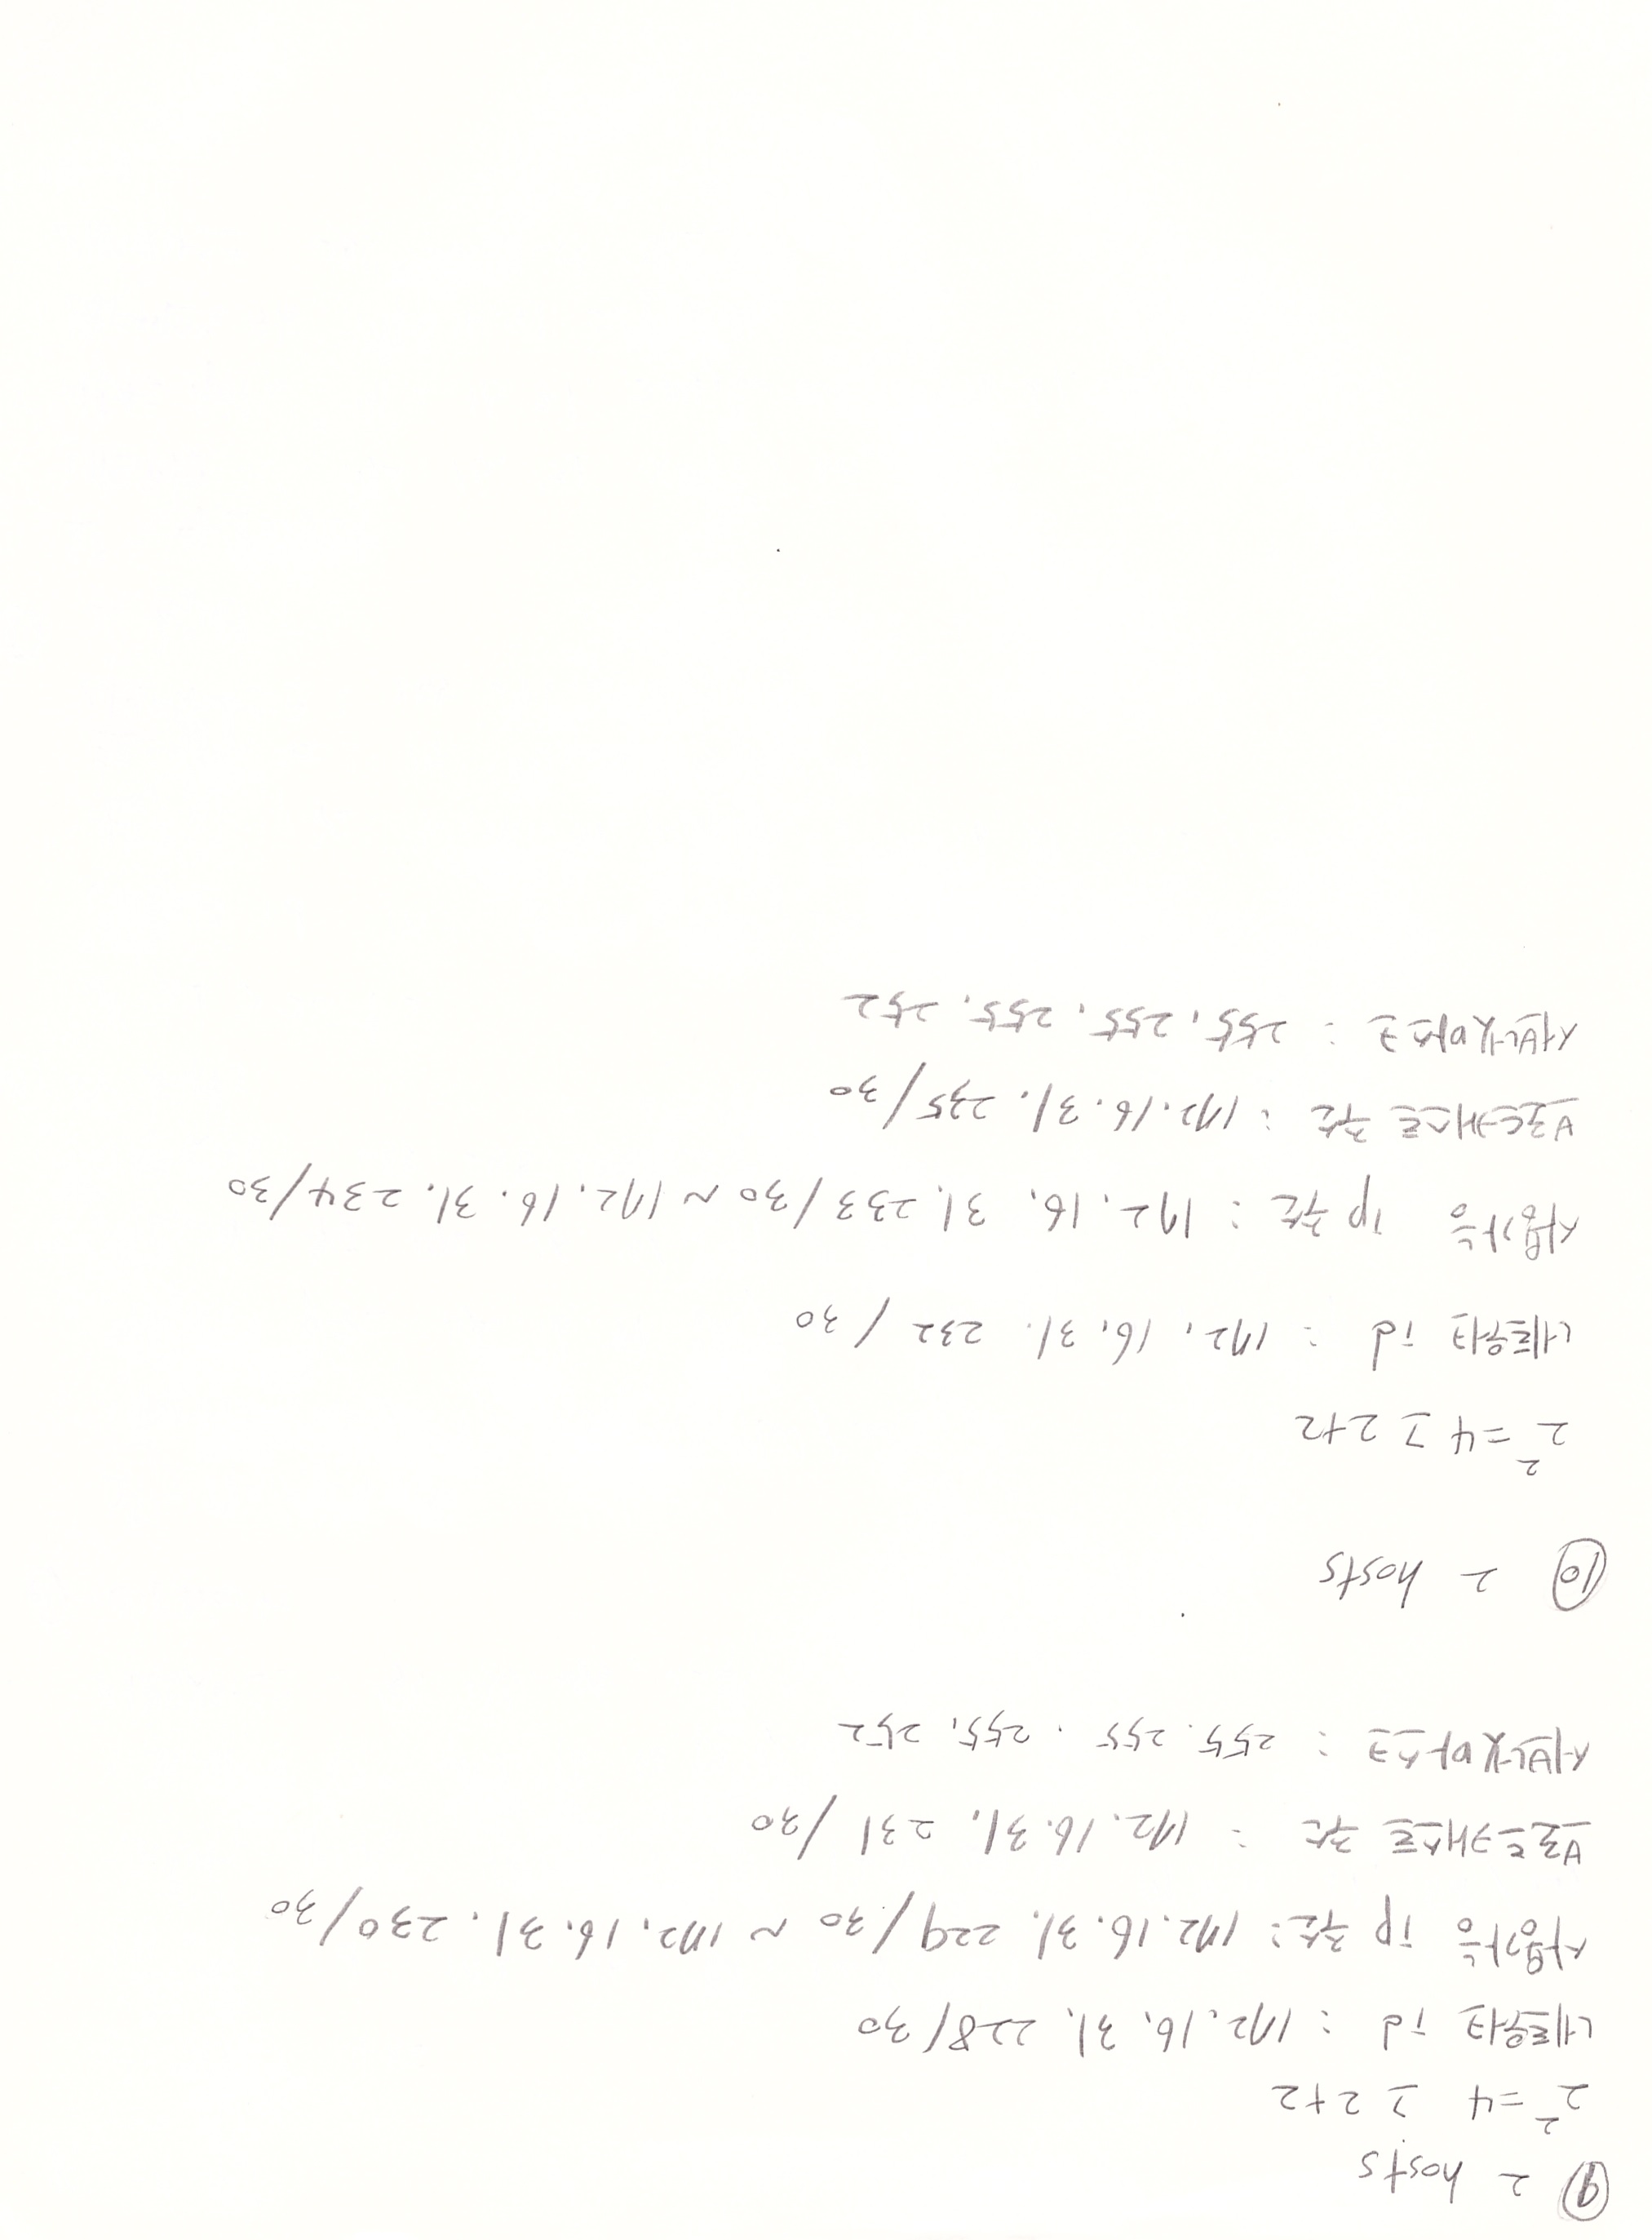 ⑨ 2 hosts
2² = 4 ≥ 2+2
네트워크 id : 172.16.31.228/30
사용가능 ip 주소 : 172.16.31.229/30 ~ 172.16.31.230/30
브로드캐스트 주소 : 172.16.31.231/30
서브넷마스크 : 255.255.255.252
⑩ 2 hosts
2² = 4 ≥ 2+2
네트워크 id : 172.16.31.232/30
사용가능 ip 주소 : 172.16.31.233/30 ~ 172.16.31.234/30
브로드캐스트 주소 : 172.16.31.235/30
서브넷마스크 : 255.255.255.252